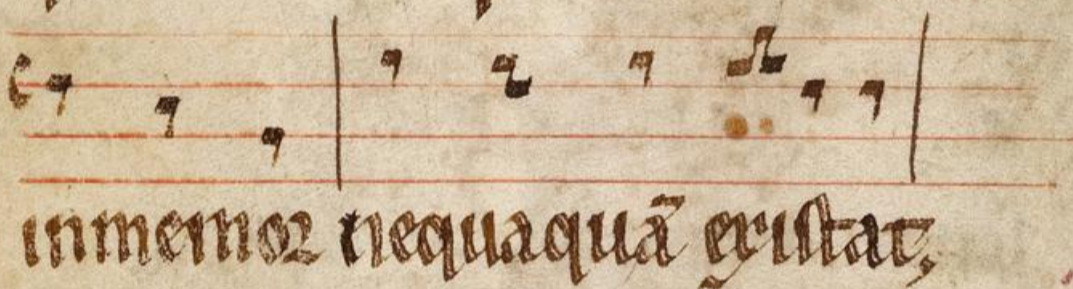 inmemoꝛ nequaquā exiſtat,